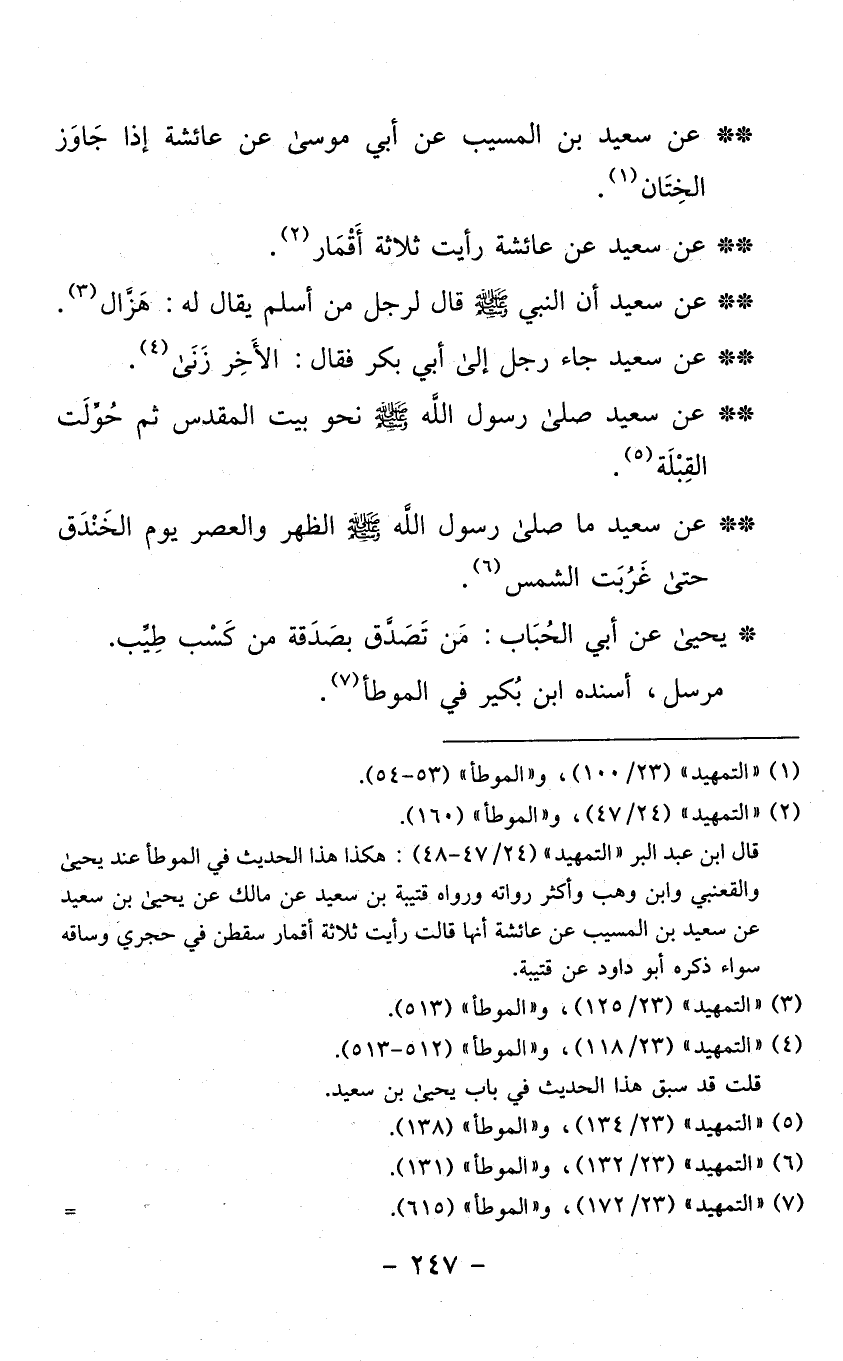 ** عن سعيد بن المسيب عن أبي موسىٰ عن عائشة إذا جَاوَز
الخِتَان(١).
** عن سعيد عن عائشة رأيت ثلاثة أَقْمَار(٢).
** عن سعيد أن النبي ﷺ قال لرجل من أسلم يقال له : هَزَّال(٣).
** عن سعيد جاء رجل إلىٰ أبي بكر فقال : الأَخِر زَنَىٰ(٤).
** عن سعيد صلىٰ رسول اللَّه ﷺ نحو بيت المقدس ثم حُوِّلَت
القِبْلَة(٥).
** عن سعيد ما صلىٰ رسول اللَّه ﷺ الظهر والعصر يوم الخَنْدَق
حتىٰ غَرُبَت الشمس(٦).
* يحيىٰ عن أبي الحُبَاب : مَن تَصَدَّق بصَدَقة من كَسْب طِيِّب.
مرسل ، أسنده ابن بُكير في الموطأ(٧).
(١) «التمهيد» (٢٣/ ١٠٠)، و«الموطأ» (٥٣-٥٤).
(٢) «التمهيد» (٢٤/ ٤٧)، و«الموطأ» (١٦٠).
قال ابن عبد البر «التمهيد» (٢٤/ ٤٧-٤٨) : هكذا هذا الحديث في الموطأ عند يحيىٰ
والقعنبي وابن وهب وأكثر رواته ورواه قتيبة بن سعيد عن مالك عن يحيىٰ بن سعيد
عن سعيد بن المسيب عن عائشة أنها قالت رأيت ثلاثة أقمار سقطن في حجري وساقه
سواء ذكره أبو داود عن قتيبة.
(٣) «التمهيد» (٢٣/ ١٢٥)، و«الموطأ» (٥١٣).
(٤) «التمهيد» (٢٣/ ١١٨)، و«الموطأ» (٥١٢-٥١٣).
قلت قد سبق هذا الحديث في باب يحيىٰ بن سعيد.
(٥) «التمهيد» (٢٣/ ١٣٤)، و«الموطأ» (١٣٨).
(٦) «التمهيد» (٢٣/ ١٣٢)، و«الموطأ» (١٣١).
(٧) «التمهيد» (٢٣/ ١٧٢)، و«الموطأ» (٦١٥). =
- ٢٤٧ -